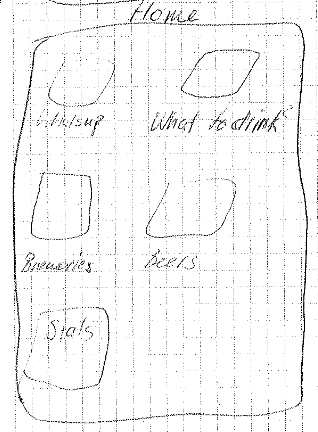 Home
What to drink?
Breweries
Beers
Stats